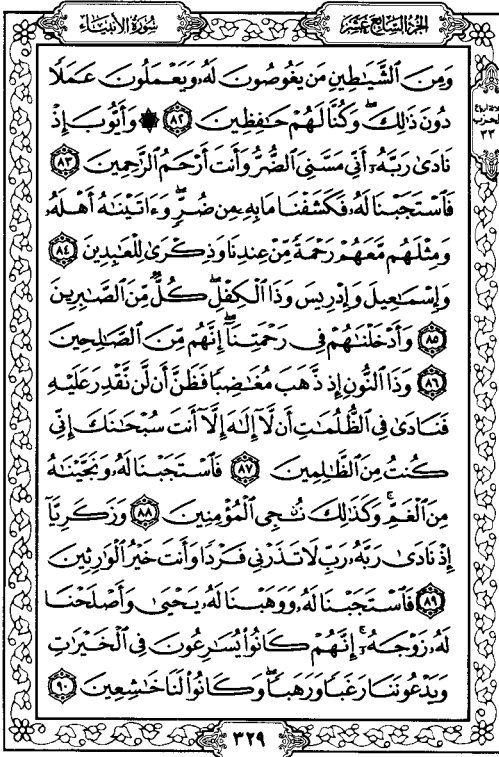 سُورَةُ الأَنبِيَاء
الجُزْءُ السَّابِعَ عَشَرَ
وَمِنَ ٱلشَّيَٰطِينِ مَن يَغُوصُونَ لَهُۥ وَيَعْمَلُونَ عَمَلًا
دُونَ ذَٰلِكَۖ وَكُنَّا لَهُمْ حَٰفِظِينَ ٨٢ ۞ وَأَيُّوبَ إِذْ
نَادَىٰ رَبَّهُۥٓ أَنِّي مَسَّنِيَ ٱلضُّرُّ وَأَنتَ أَرْحَمُ ٱلرَّٰحِمِينَ ٨٣
فَٱسْتَجَبْنَا لَهُۥ فَكَشَفْنَا مَا بِهِۦ مِن ضُرٍّۖ وَءَاتَيْنَٰهُ أَهْلَهُۥ
وَمِثْلَهُم مَّعَهُمْ رَحْمَةً مِّنْ عِندِنَا وَذِكْرَىٰ لِلْعَٰبِدِينَ ٨٤
وَإِسْمَٰعِيلَ وَإِدْرِيسَ وَذَا ٱلْكِفْلِۖ كُلٌّ مِّنَ ٱلصَّٰبِرِينَ
٨٥ وَأَدْخَلْنَٰهُمْ فِي رَحْمَتِنَآۖ إِنَّهُم مِّنَ ٱلصَّٰلِحِينَ
٨٦ وَذَا ٱلنُّونِ إِذ ذَّهَبَ مُغَٰضِبًا فَظَنَّ أَن لَّن نَّقْدِرَ عَلَيْهِ
فَنَادَىٰ فِي ٱلظُّلُمَٰتِ أَن لَّآ إِلَٰهَ إِلَّآ أَنتَ سُبْحَٰنَكَ إِنِّي
كُنتُ مِنَ ٱلظَّٰلِمِينَ ٨٧ فَٱسْتَجَبْنَا لَهُۥ وَنَجَّيْنَٰهُ
مِنَ ٱلْغَمِّۚ وَكَذَٰلِكَ نُـۨجِي ٱلْمُؤْمِنِينَ ٨٨ وَزَكَرِيَّآ
إِذْ نَادَىٰ رَبَّهُۥ رَبِّ لَا تَذَرْنِي فَرْدًا وَأَنتَ خَيْرُ ٱلْوَٰرِثِينَ
٨٩ فَٱسْتَجَبْنَا لَهُۥ وَوَهَبْنَا لَهُۥ يَحْيَىٰ وَأَصْلَحْنَا
لَهُۥ زَوْجَهُۥٓۚ إِنَّهُمْ كَانُوا۟ يُسَٰرِعُونَ فِي ٱلْخَيْرَٰتِ
وَيَدْعُونَنَا رَغَبًا وَرَهَبًاۖ وَكَانُوا۟ لَنَا خَٰشِعِينَ ٩٠
الحزب
٣٣
٣٢٩